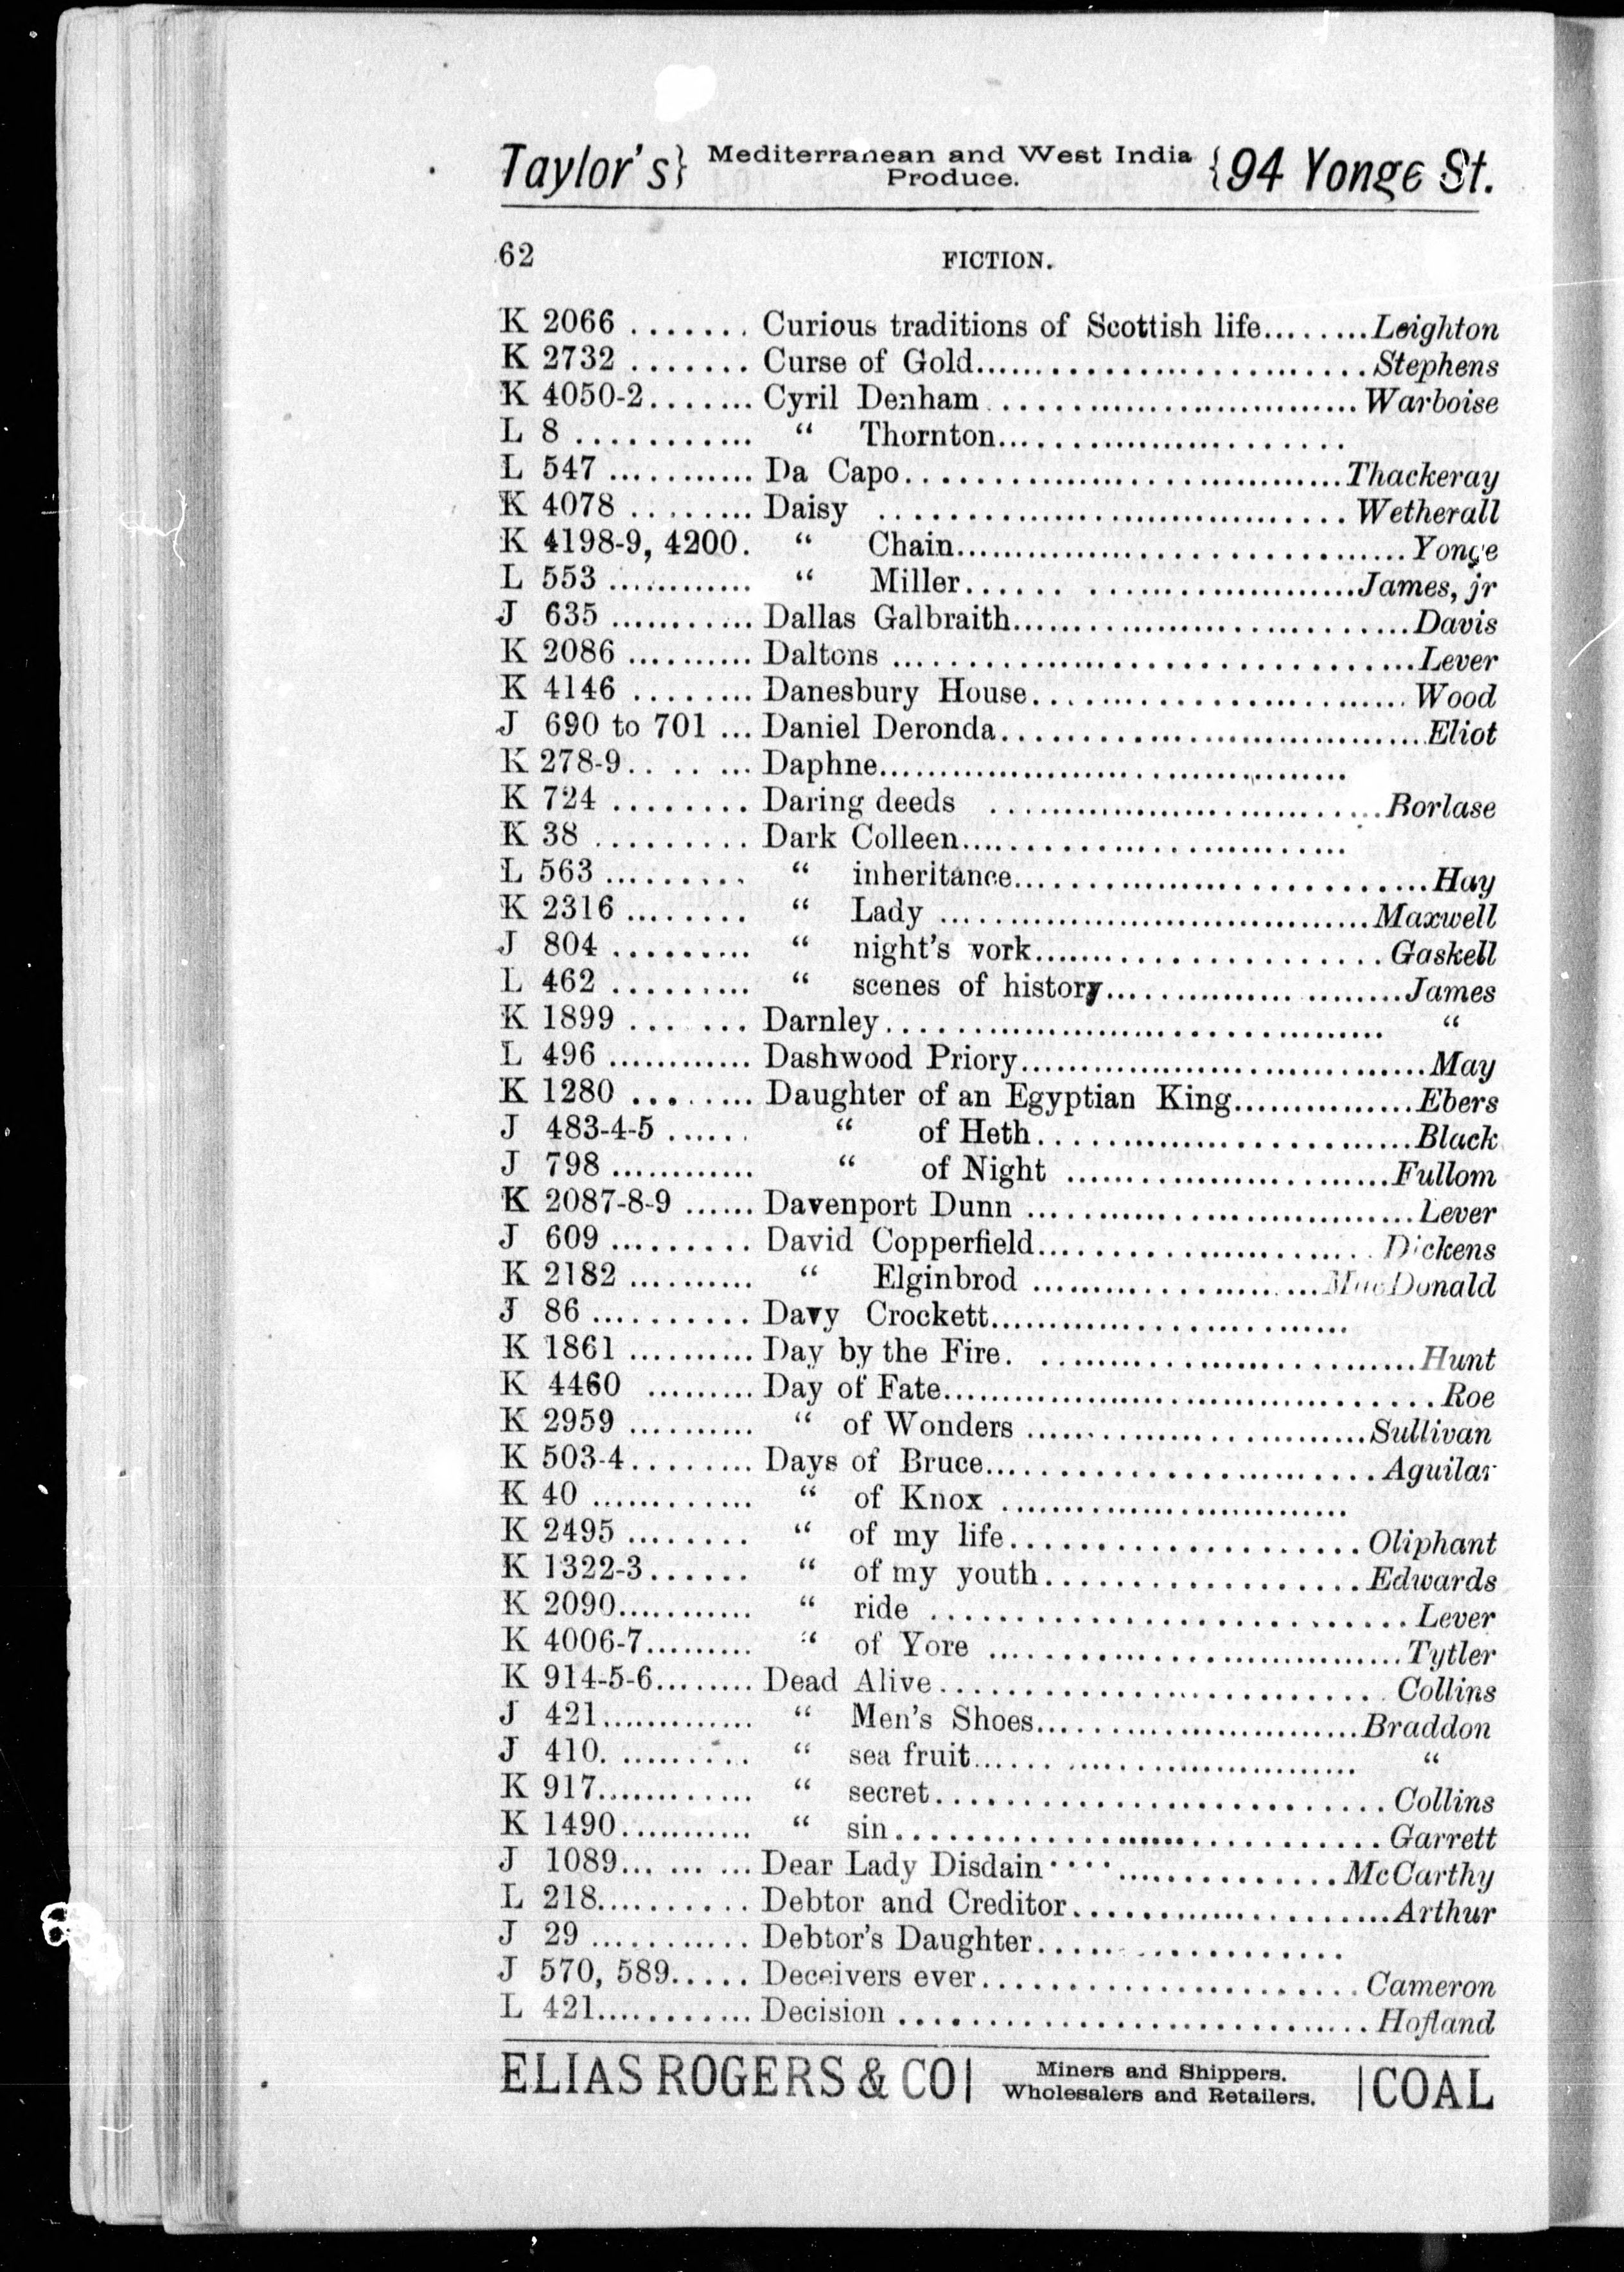 Taylor's} Mediterranean and West India Produce. {94 Yonge St.
62 FICTION.
K 2066 ....... Curious traditions of Scottish life........Leighton
K 2732 ....... Curse of Gold..........................Stephens
K 4050-2....... Cyril Denham ..........................Warboise
L 8 ............ “ Thornton.......................
L 547 ........... Da Capo..............................Thackeray
K 4078 ........ Daisy ................................Wetherall
K 4198-9, 4200. “ Chain..............................Yonge
L 553 ............ “ Miller...... ....................James, jr
J 635 ........... Dallas Galbraith..........................Davis
K 2086 .......... Daltons ..................................Lever
K 4146 ........ Danesbury House.........................Wood
J 690 to 701 ... Daniel Deronda............................Eliot
K 278-9.. .. .. ... Daphne................................
K 724 ........ Daring deeds ..........................Borlase
K 38 .......... Dark Colleen..........................
L 563 ......... “ inheritance...........................Hay
K 2316 ........ “ Lady .............................Maxwell
J 804 .......... “ night's vork.......................Gaskell
L 462 .......... “ scenes of history.............. ........James
K 1899 .... ... Darnley................................. “
L 496 ............ Dashwood Priory...........................May
K 1280 ......... Daughter of an Egyptian King...............Ebers
J 483-4-5 ...... “ of Heth.........................Black
J 798 ............ “ of Night ......................Fullom
K 2087-8-9 ...... Davenport Dunn ..........................Lever
J 609 .......... David Copperfield...................... Dickens
K 2182 .......... “ Elginbrod ....................MacDonald
J 86 ........... Davy Crockett........................
K 1861 ........... Day by the Fire. .........................Hunt
K 4460 ......... Day of Fate...............................Roe
K 2959 ........... “ of Wonders ......................Sullivan
K 503-4........ Days of Bruce..........................Aguilar
K 40 ............ “ of Knox ........................
K 2495 ........ “ of my life.......................Oliphant
K 1322-3...... “ of my youth....................Edwards
K 2090........... “ ride ..............................Lever
K 4006-7......... “ of Yore ..........................Tytler
K 914-5-6........ Dead Alive............................ Collins
J 421............. “ Men's Shoes......................Braddon
J 410. .......... “ sea fruit...... ................... “
K 917............ “ secret............................Collins
K 1490........... “ sin................................Garrett
J 1089... ... ... Dear Lady Disdain..................McCarthy
L 218.......... Debtor and Creditor.....................Arthur
J 29 ........... Debtor's Daughter.....................
J 570, 589..... Deceivers ever........................Cameron
L 421........... Decision ..............................Hofland
ELIAS ROGERS & CO | Miners and Shippers. Wholesalers and Retailers. | COAL